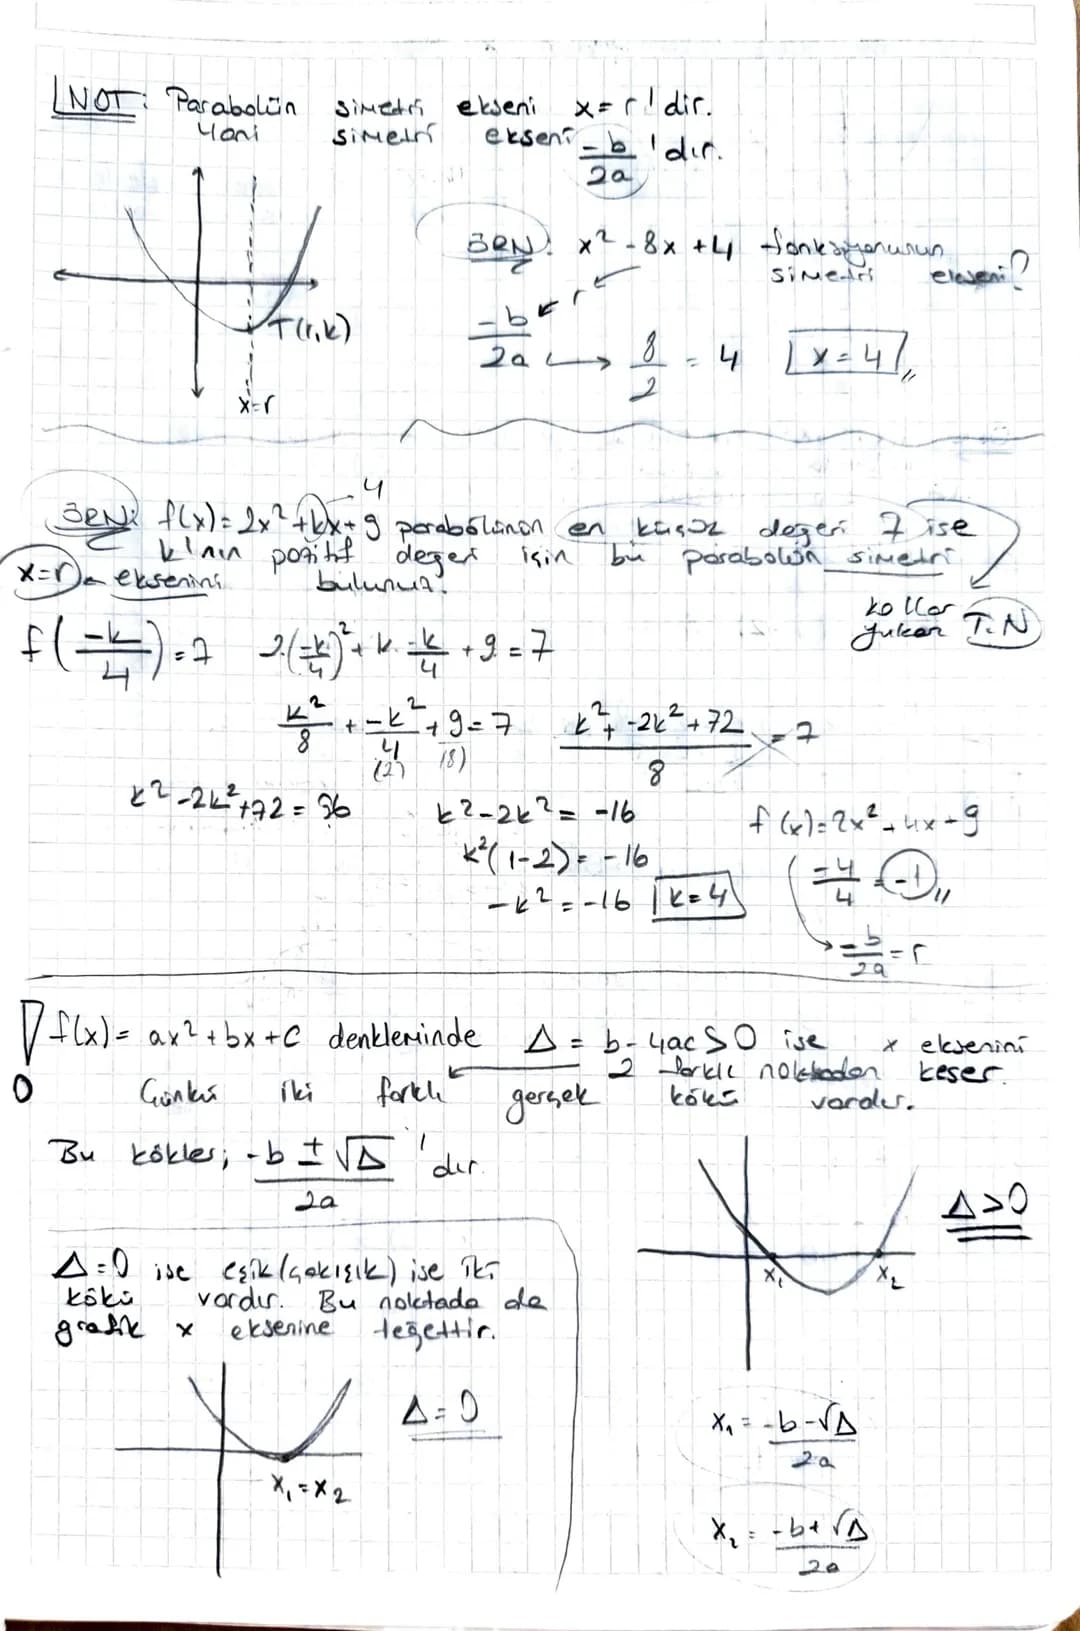 NOT: Parabolün simetri ekseni x=r'dir.
Yani simetri ekseni -b/2a 'dır.
T(r,k)
x=r
ÖRN: x² -8x +4 fonksiyonunun
simetri ekseni?
r
-b/2a → 8/2 = 4 x=4
4
ÖRN: f(x)=2x²+kx+9 parabolünün en küçük değeri 7 ise
k'nın pozitif değer için bu parabolün simetri
x=r eksenini bulunuz.
kollar
yukarı T.N
f(-k/4)=7 2.(-k/4)²+k.-k/4+9=7
k²/8 + -k²/4 + 9 = 7 k²+-2k²+72/8 = 7
(2) (8)
k²-2k²+72=56 k²-2k²= -16 f(x)=2x²+4x+9
k²(1-2)= -16 -4/4 = -1
-k²=-16 k=4
-b/2a = r
f(x)= ax²+bx+c denkleminde Δ = b-4ac>0 ise x eksenini
2 farklı noktadan keser.
Çünkü iki farklı gerçek kökü vardır.
Bu kökler; -b ± √Δ/2a 'dır.
Δ>0
x₁ x₂
Δ=0 ise eşik (çakışık) ise iki
kökü vardır. Bu noktada da
grafik x eksenine teğettir.
Δ=0
x₁=x₂
x₁ = -b-√Δ/2a
x₂ = -b+√Δ/2a